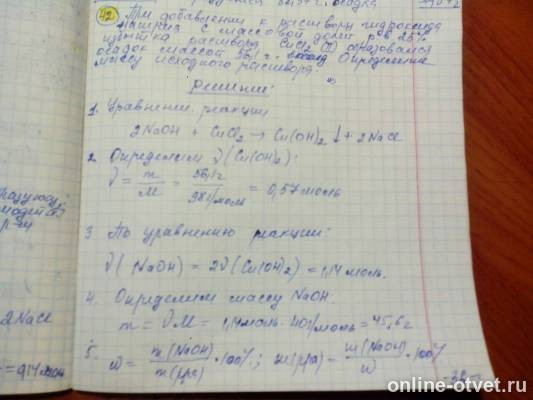 42 При добавлении к раствору гидроксида
натрия с массовой долей рав 25%
избытка раствора CuCl2 (II) образовался
осадок массой 56,1 г. Определите
массу исходного раствора.
Решение:
1. Уравнение реакции
2NaOH + CuCl2 → Cu(OH)2 ↓ + 2NaCl
2. Определяем ν(Cu(OH)2):
ν = m/M = 56,1г/98г/моль = 0,57 моль
3 По уравнению реакции:
ν(NaOH) = 2ν(Cu(OH)2) = 1,14 моль.
4. Определяем массу NaOH.
m = νM = 1,14 моль · 40г/моль = 45,6 г
5. ω = m(NaOH)/m(р-ра) · 100%; m(р-ра) = m(NaOH)/ω · 100%
2NaCl
online-otvet.ru